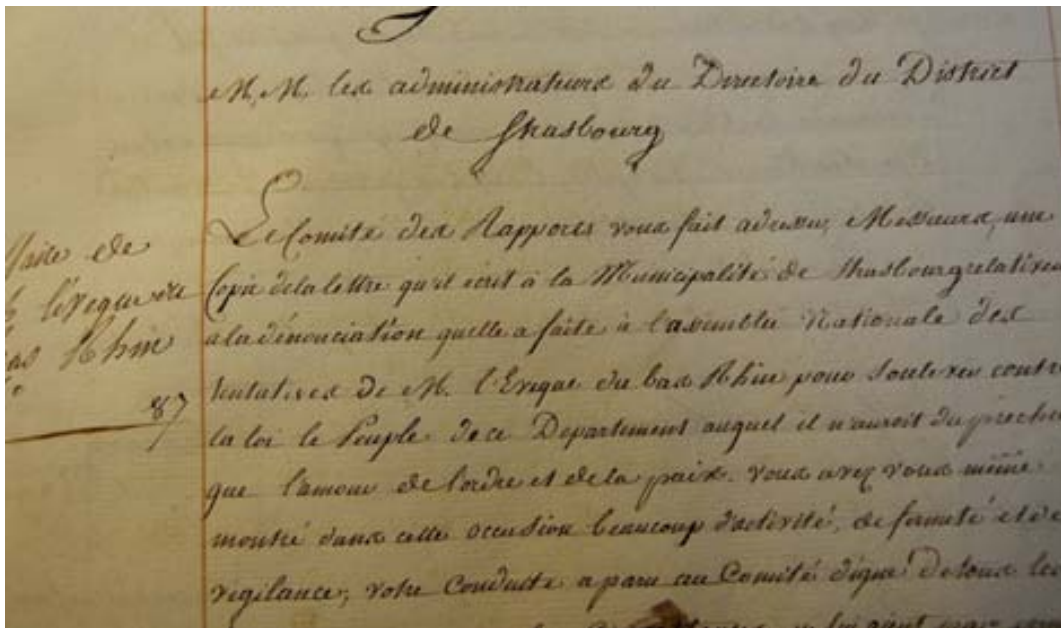 M.M. les administrateurs du Directoire du District
de Strasbourg
Le Comité des Rapports vous fait adresser, Messieurs, une
Copie de la lettre qu'il écrit à la Municipalité de Strasbourg relative
a la dénonciation quelle a faite à l'assemblée Nationale des
tentatives de M. l'Evêque du bas Rhin pour soulever contre
la loi le Peuple de ce Departement auquel il n'auroit du prêcher
que l'amour de l'ordre et de la paix. vous avez vous même
montré dans cette occasion beaucoup d'activité, de fermeté et de
vigilance; votre Conduite a paru au Comité digne de tous les
de
l'Evêque du
Rhin
87